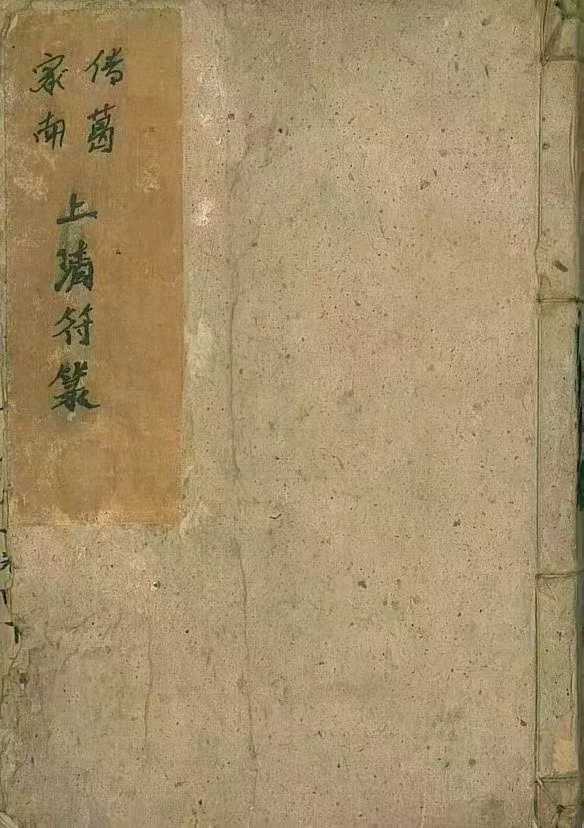 传葛
家南
上清符箓